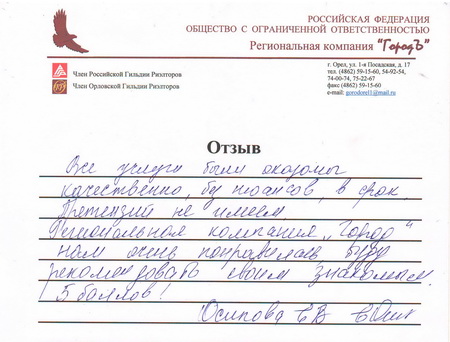 РОССИЙСКАЯ ФЕДЕРАЦИЯ
ОБЩЕСТВО С ОГРАНИЧЕННОЙ ОТВЕТСТВЕННОСТЬЮ
Региональная компания "ГородЪ"
Член Российской Гильдии Риэлторов
Член Орловской Гильдии Риэлторов
г. Орел, ул. 1-я Посадская, д. 17
тел. (4862) 59-15-60, 54-92-54,
74-00-74, 75-22-67
факс (4862) 59-15-60
e-mail: gorodorel1@mail.ru
Отзыв
Все услуги были оказаны
качественно, без нюансов, в срок.
Претензий не имеем.
Региональная компания „Город“
нам очень понравилась, буду
рекомендовать своим знакомым.
5 баллов!
Осипова ЕВ